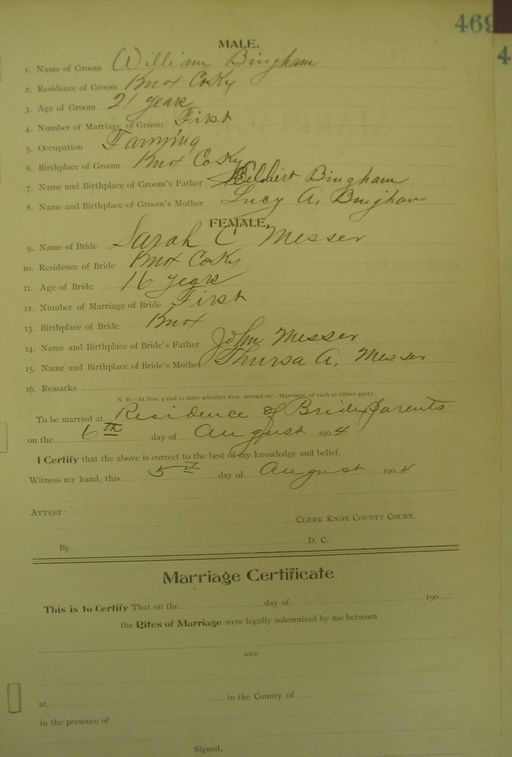 469
4
MALE.
1. Name of Groom William Bingham
2. Residence of Groom Knox Co Ky
3. Age of Groom 21 years
4. Number of Marriage of Groom First
5. Occupation Farming
6. Birthplace of Groom Knox Co Ky
7. Name and Birthplace of Groom's Father Elbert Bingham
8. Name and Birthplace of Groom's Mother Lucy A. Bingham
FEMALE.
9. Name of Bride Sarah C Messer
10. Residence of Bride Knox Co Ky
11. Age of Bride 16 years
12. Number of Marriage of Bride First
13. Birthplace of Bride Knox
14. Name and Birthplace of Bride's Father John Messer
15. Name and Birthplace of Bride's Mother Thursa A. Messer
16. Remarks
N. B.—At Nos. 4 and 12 state whether first, second etc., Marriage of each or either party.
To be married at Residence of Brides parents
on the 6th day of August 1904
I Certify that the above is correct to the best of my knowledge and belief.
Witness my hand, this 5th day of August 1904
ATTEST:
CLERK KNOX COUNTY COURT.
By D. C.
Marriage Certificate
This is to Certify That on the day of 190
the Rites of Marriage were legally solemnized by me between
AND
at in the County of
in the presence of
Signed,